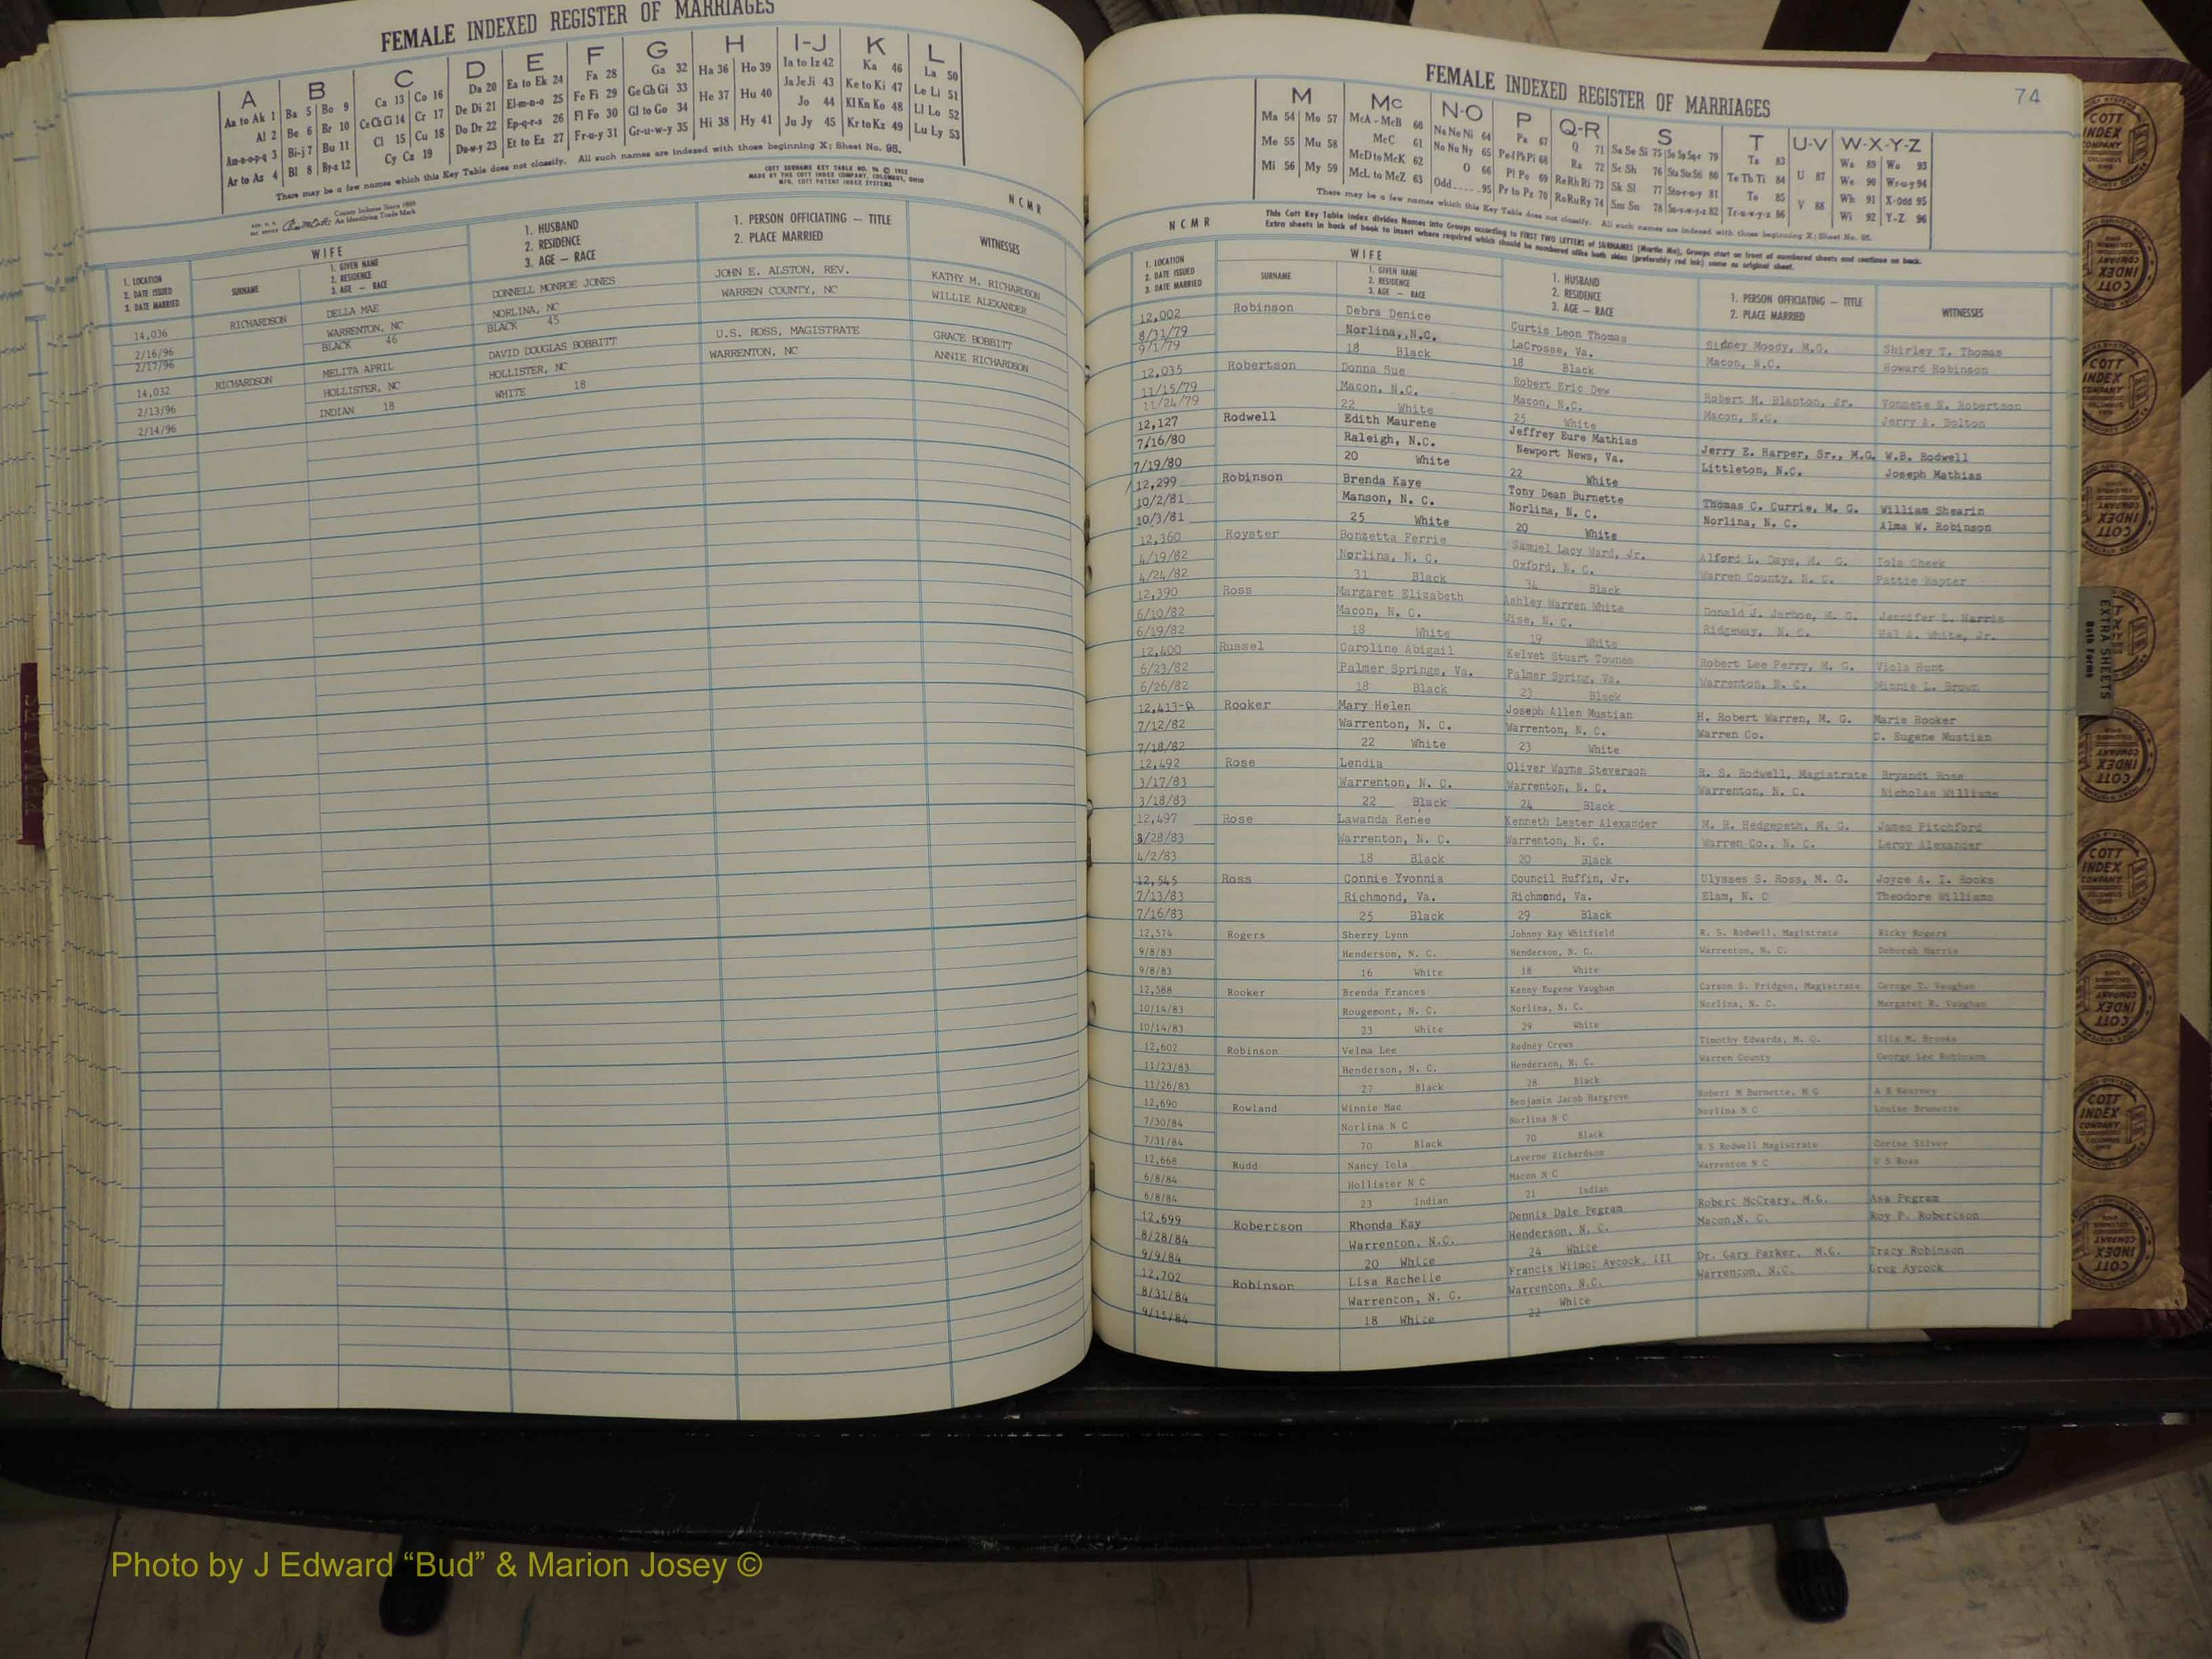 FEMALE INDEXED REGISTER OF MARRIAGES
A B C D E F G H I-J K L
Aa to Ak 1 Ba 5 Bo 9 Ca 13 Co 16 Da 20 Ea to Ek 24 Fa 28 Ga 32 Ha 36 Ho 39 Ia to Iz 42 Ka 46 La 50
Al 2 Be 6 Br 10 Ce Ch Ci 14 Cr 17 De Di 21 El-m-n-o 25 Fe Fi 29 Ge Gh Gi 33 He 37 Hu 40 Ja Je Ji 43 Ke to Ki 47 Le Li 51
An-a-o-p-q 3 Bi-j 7 Bu 11 Cl 15 Cu 18 Do Dr 22 Ep-q-r-s 26 Fl Fo 30 Gl to Go 34 Hi 38 Hy 41 Jo 44 Kl Kn Ko 48 Ll Lo 52
Ar to Az 4 Bl 8 By-z 12 Cy Cz 19 Du-w-y 23 Et to Ez 27 Fr-u-y 31 Gr-u-w-y 35 Ju Jy 45 Kr to Kz 49 Lu Ly 53
There may be a few names which this Key Table does not classify. All such names are indexed with those beginning X; Sheet No. 95.
COTT SURNAME KEY TABLE NO. 96 © 1952
MADE BY THE COTT INDEX COMPANY, COLUMBUS, OHIO
MFG. COTT PATENT INDEX SYSTEMS
County Indexes Since 1888
An Identifying Trade Mark
NCMR
WIFE
1. LOCATION
2. DATE ISSUED
3. DATE MARRIED
SURNAME
1. GIVEN NAME
2. RESIDENCE
3. AGE — RACE
1. HUSBAND
2. RESIDENCE
3. AGE — RACE
1. PERSON OFFICIATING — TITLE
2. PLACE MARRIED
WITNESSES
14,036 RICHARDSON DELLA MAE DONNELL MONROE JONES JOHN E. ALSTON, REV. KATHY M. RICHARDSON
2/16/96 WARRENTON, NC NORLINA, NC WARREN COUNTY, NC WILLIE ALEXANDER
2/17/96 BLACK 46 BLACK 45
14,032 RICHARDSON MELITA APRIL DAVID DOUGLAS BOBBITT U.S. ROSS, MAGISTRATE GRACE BOBBITT
2/13/96 HOLLISTER, NC HOLLISTER, NC WARRENTON, NC ANNIE RICHARDSON
2/14/96 INDIAN 18 WHITE 18
FEMALE INDEXED REGISTER OF MARRIAGES
74
M Mc N-O P Q-R S T U-V W-X-Y-Z
Ma 54 Mo 57 McA - McB 60 Na Ne Ni 64 Pa 67 Q 71 Sa Se Si 75 So Sp Sq-r 79 Ta 83 U 87 Wa 89 Wo 93
Me 55 Mu 58 McC 61 No Nu Ny 65 Pe-f Ph Pi 68 Ra 72 Sc Sh 76 Sta Ste Sti 80 Te Th Ti 84 V 88 We 90 Wr-u-y 94
Mi 56 My 59 McD to McK 62 O 66 Pl Po 69 Re Rh Ri 73 Sk Sl 77 Sto-r-u-y 81 To 85 Wh 91 X-Odd 95
McL to McZ 63 Odd 95 Pr to Pz 70 Ro Ru Ry 74 Sm Sn 78 Su-v-w-y-z 82 Tr-u-w-y-z 86 Wi 92 Y-Z 96
There may be a few names which this Key Table does not classify. All such names are indexed with those beginning X; Sheet No. 95.
This Cott Key Table Index divides Names into Groups according to FIRST TWO LETTERS of SURNAMES (Martin Ma), Groups start on front of numbered sheets and continue on back.
Extra sheets in back of book to insert where required which should be numbered alike both sides (preferably red ink) same as original sheet.
NCMR
WIFE
1. LOCATION
2. DATE ISSUED
3. DATE MARRIED
SURNAME
1. GIVEN NAME
2. RESIDENCE
3. AGE — RACE
1. HUSBAND
2. RESIDENCE
3. AGE — RACE
1. PERSON OFFICIATING — TITLE
2. PLACE MARRIED
WITNESSES
12,002 Robinson Debra Denice Curtis Leon Thomas Sidney Moody, M.G. Shirley T. Thomas
8/31/79 Norlina, N.C. LaCrosse, Va. Macon, N.C. Howard Robinson
9/1/79 18 Black 18 Black
12,035 Robertson Donna Sue Robert Eric Dew Robert M. Blanton, Jr. Vonnete N. Robertson
11/15/79 Macon, N.C. Macon, N.C. Macon, N.C. Jerry A. Bolton
11/24/79 22 White 25 White
12,127 Rodwell Edith Maurene Jeffrey Eure Mathias Jerry E. Harper, Sr., M.G. W.B. Rodwell
7/16/80 Raleigh, N.C. Newport News, Va. Littleton, N.C. Joseph Mathias
7/19/80 20 White 22 White
12,299 Robinson Brenda Kaye Tony Dean Burnette Thomas C. Currie, M. G. William Shearin
10/2/81 Manson, N. C. Norlina, N. C. Norlina, N. C. Alma W. Robinson
10/3/81 25 White 20 White
12,360 Royster Bonzetta Ferrie Samuel Lacy Ward, Jr. Alford L. Daye, M. G. Iola Cheek
4/19/82 Norlina, N. C. Oxford, N. C. Warren County, N. C. Pattie Hapter
4/24/82 31 Black 34 Black
12,390 Ross Margaret Elizabeth Ashley Warren White Donald J. Jarboe, M. G. Jennifer L. Harris
6/10/82 Macon, N. C. Wise, N. C. Ridgeway, N. C. Hal A. White, Jr.
6/19/82 18 White 19 White
12,400 Russel Caroline Abigail Kelvet Stuart Townes Robert Lee Perry, M. G. Viola Hunt
6/23/82 Palmer Springs, Va. Palmer Spring, Va. Warrenton, N. C. Minnie L. Brown
6/26/82 18 Black 23 Black
12,413-A Rooker Mary Helen Joseph Allen Mustian H. Robert Warren, M. G. Marie Rooker
7/12/82 Warrenton, N. C. Warrenton, N. C. Warren Co. C. Eugene Mustian
7/18/82 22 White 23 White
12,492 Rose Lendia Oliver Wayne Steverson R. S. Rodwell, Magistrate Bryandt Rose
3/17/83 Warrenton, N. C. Warrenton, N. C. Warrenton, N. C. Nicholas Williams
3/18/83 22 Black 24 Black
12,497 Rose Lawanda Renée Kenneth Lester Alexander M. R. Hedgepeth, M. G. James Pitchford
3/28/83 Warrenton, N. C. Warrenton, N. C. Warren Co., N. C. Leroy Alexander
4/2/83 18 Black 20 Black
12,545 Ross Connie Yvonnia Council Ruffin, Jr. Ulysses S. Ross, M. G. Joyce A. I. Rooks
7/13/83 Richmond, Va. Richmond, Va. Elam, N. C Theodore Williams
7/16/83 25 Black 29 Black
12,574 Rogers Sherry Lynn Johnny Ray Whitfield R. S. Rodwell, Magistrate Ricky Rogers
9/8/83 Henderson, N. C. Henderson, N. C. Warrenton, N. C. Deborah Harris
9/8/83 16 White 18 White
12,588 Rooker Brenda Frances Kenny Eugene Vaughan Carson S. Pridgen, Magistrate George T. Vaughan
10/14/83 Rougemont, N. C. Norlina, N. C. Norlina, N. C. Margaret R. Vaughan
10/14/83 23 White 29 White
12,602 Robinson Velma Lee Rodney Crews Timothy Edwards, M. G. Ella M. Brooks
11/23/83 Henderson, N. C. Henderson, N. C. Warren County George Lee Robinson
11/26/83 27 Black 28 Black
12,690 Rowland Winnie Mae Benjamin Jacob Hargrove Robert M Burnette, M G A E Kearney
7/30/84 Norlina N C Norlina N C Norlina N C Louise Brunette
7/31/84 70 Black 70 Black
12,668 Rudd Nancy Iola Laverne Richardson R S Rodwell Magistrate Dorine Silver
6/8/84 Hollister N C Macon N C Warrenton N C U S Ross
6/8/84 23 Indian 21 Indian
12,699 Robertson Rhonda Kay Dennis Dale Pegram Robert McCrary, M.G. Asa Pegram
8/28/84 Warrenton, N.C. Henderson, N. C. Macon,N. C. Roy P. Robertson
9/9/84 20 White 24 White
12,702 Robinson Lisa Rachelle Francis Wilmot Aycock, III Dr. Gary Parker, M.G. Tracy Robinson
8/31/84 Warrenton, N. C. Warrenton, N.C. Warrenton, N.C. Greg Aycock
9/15/84 18 White 22 White
EXTRA SHEETS
Both Forms
COTT
INDEX
COMPANY
FEMALES
Photo by J Edward “Bud” & Marion Josey ©